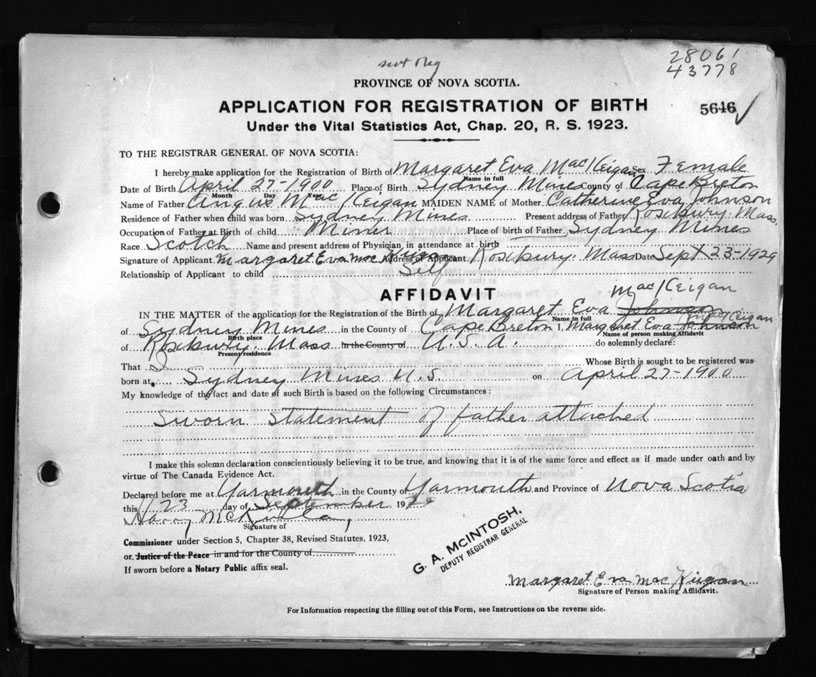 28061
43778
PROVINCE OF NOVA SCOTIA.
APPLICATION FOR REGISTRATION OF BIRTH
5646
Under the Vital Statistics Act, Chap. 20, R. S. 1923.
TO THE REGISTRAR GENERAL OF NOVA SCOTIA:
I hereby make application for the Registration of Birth of Margaret Eva MacKeigan Sex Female
Name in full
Date of Birth April 27-1900 Place of Birth Sydney Mines County of Cape Breton
Month Day
Name of Father Angus MacKeigan MAIDEN NAME of Mother Catherine Eva Johnson
Residence of Father when child was born Sydney Mines Present address of Father Roxbury Mass
Occupation of Father at Birth of child Miner Place of birth of Father Sydney Mines
Race Scotch Name and present address of Physician, in attendance at birth
Signature of Applicant Margaret Eva Mac Address of Applicant Roxbury Mass Date Sept 23-1929
Relationship of Applicant to child Self
AFFIDAVIT
MacKeigan
IN THE MATTER of the application for the Registration of the Birth of Margaret Eva Johnson
Name in full MacKeigan
of Sydney Mines in the County of Cape Breton I, Margaret Eva Johnson
Birth place Name of person making Affidavit
of Roxbury Mass in the County of U.S.A. do solemnly declare:
Present residence
That I Whose Birth is sought to be registered was
born at Sydney Mines N.S. on April 27-1900
My knowledge of the fact and date of such Birth is based on the following Circumstances:
Sworn Statement of father attached
I make this solemn declaration conscientiously believing it to be true, and knowing that it is of the same force and effect as if made under oath and by
virtue of The Canada Evidence Act.
Declared before me at Yarmouth in the County of Yarmouth and Province of Nova Scotia
this 23 day of September 19
Harry
Signature of
Commissioner under Section 5, Chapter 38, Revised Statutes, 1923,
or Justice of the Peace in and for the County of
If sworn before a Notary Public affix seal.
G. A. McINTOSH,
DEPUTY REGISTRAR GENERAL
Margaret Eva MacKeigan
Signature of Person making Affidavit.
For Information respecting the filling out of this Form, see Instructions on the reverse side.